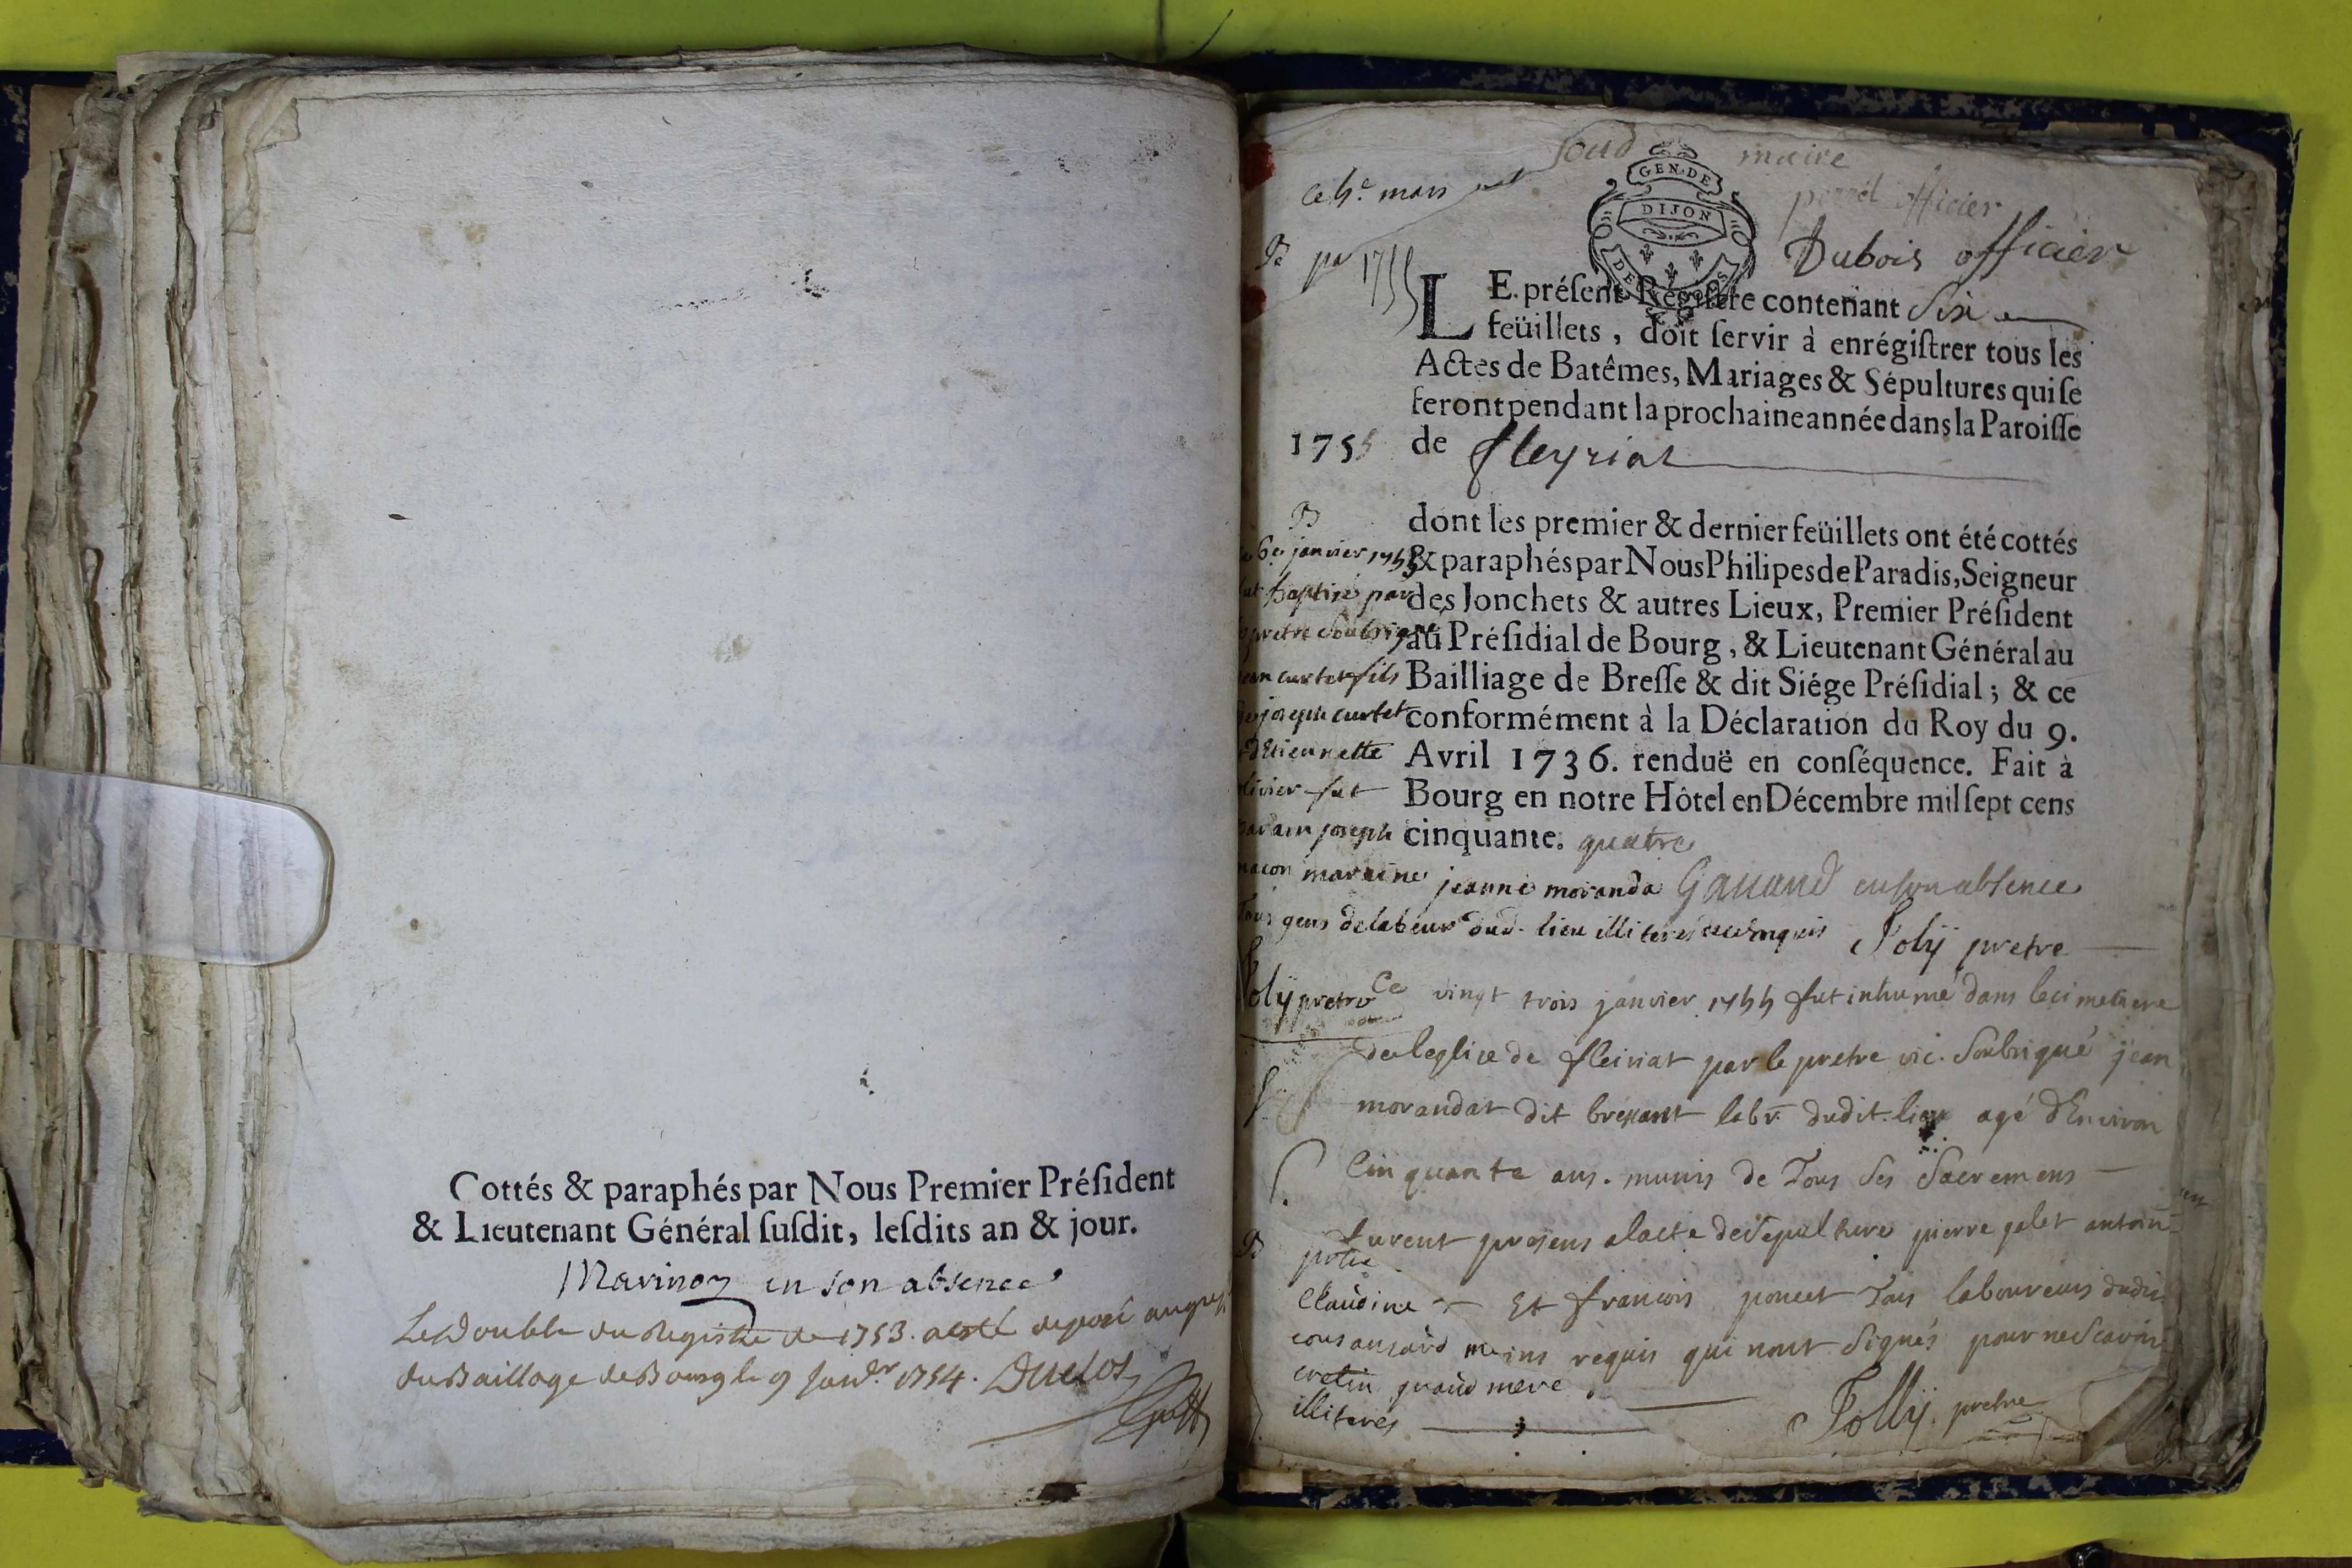 Cottés & paraphés par Nous Premier Préſident
& Lieutenant Général ſuſdit, leſdits an & jour.
Marinon en son absence
Le Double du Registre de 1753. a esté deposé au
du Baillage de Bourg le 9 Janv.r 1754. Duclos
soud maire
ce 4.e mars
officier
GEN. DE
DIJON
B
1755
Dubois officier
LE préſent Régiſtre contenant Six
feüillets, doit ſervir à enrégiſtrer tous les
Actes de Batêmes, Mariages & Sépultures qui ſe
feront pendant la prochaine année dans la Paroiſſe
1755 de fleyriat
dont les premier & dernier feüillets ont été cottés
& paraphés par Nous Philipes de Paradis, Seigneur
des Jonchets & autres Lieux, Premier Préſident
au Préſidial de Bourg, & Lieutenant Général au
Bailliage de Breſſe & dit Siége Préſidial; & ce
conformément à la Déclaration du Roy du 9.
Avril 1736. renduë en conſéquence. Fait à
Bourg en notre Hôtel en Décembre mil ſept cens
cinquante. quatre
Gauand en son absence
B
6e janvier 1755
baptisé par
pretre soubsigné
curtet fils
joseph curtet
Etiennette
fut
parain joseph
macon maraine jeanne moranda
gens de labeur dud. lieu illiteres enquis Joly pretre
Joly pretre
Ce vingt trois janvier 1755 fut inhumé dans le cimetiere
de leglise de fleiriat par le pretre vic. soubsigné jean
S
morandat dit labr. dudit lieu agé d'Environ
Cinquante ans. munis de Tous ses Sacremens
furent presens a lacte de sepulture pierre galet
B
Claudine
Et francois poncet Tous laboureurs dudit
requis qui nont signés pour ne scavoir
mere
illiteres
Jolly. pretre